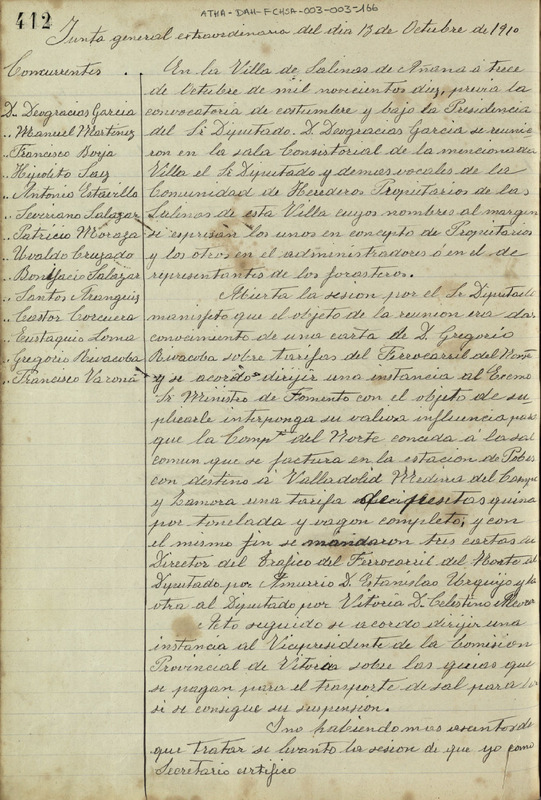 412
ATHA-DAH-FCHSA-003-003-166
Junta general extraordinaria del dia 13 de Octubre de 1910
Concurrentes
D. Deogracias Garcia
„ Manuel Martinez
„ Francisco Borja
„ Hipolito Saiz
„ Antonio Estavillo
„ Severiano Salazar
„ Patricio Moraza
„ Uvaldo Cruzado
„ Bonifacio Salazar
„ Santos Frangui
„ Castor Corcuera
„ Eustaquio Loma
„ Gregorio Ruvacoba
„ Francisco Varona
En la Villa de Salinas de Añana á trece
de Octubre de mil novecientos diez, previa la
convocatoria de costumbre y bajo la Presidencia
del Sr Diputado. D. Deogracias Garcia se reunie
ron en la sala Consistorial de la mencionada
Villa el Sr Diputado y demas vocales de la
Comunidad de Herederos Propietarios de las
Salinas de esta Villa cuyos nombres al margen
se expresan los unos en concepto de Propietarios
y los otros en el administradores ó en el de
representantes de los forasteros.
Abierta la sesion por el Sr Diputado
manifesto que el objeto de la reunion era dar
conocimiento de una carta de D. Gregorio
Ruvacoba sobre tarifas del Ferrocarril del Norte
y se acordo dirijir una instancia al Excmo
Sr Ministro de Fomento con el objeto de su
plicarle interponga su valiosa influencia para
que la Compª del Norte conceda á la sal
comun que se factura en la estacion de Pobes
con destino á Valladolid Medina del Campo
y Zamora una tarifa de pesetas quince
por tonelada y vagon completo, y con
el mismo fin se mandaron tres cartas al
Director del Trafico del Ferrocarril del Norte al
Diputado por Amurrio D. Estanislao Urquijo y la
otra al Diputado por Vitoria D. Celestino
Acto seguido se acordo dirijir una
instancia al Vicepresidente de la Comision
Provincial de Vitoria sobre las guias que
se pagan para el trasporte de sal para
si se consigue su suspension.
I no habiendo mas asuntos de
que tratar se levanto la sesion de que yo como
Secretario certifico